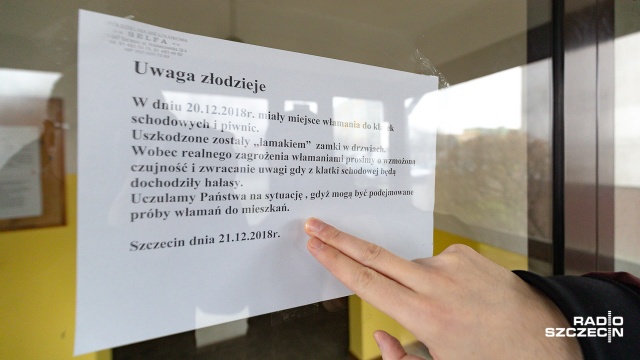 SELFA
Uwaga złodzieje
W dniu 20.12.2018r. miały miejsce włamania do klatek
schodowych i piwnic.
Uszkodzone zostały „łamakiem” zamki w drzwiach.
Wobec realnego zagrożenia włamaniami prosimy o wzmożoną
czujność i zwracanie uwagi gdy z klatki schodowej będą
dochodziły hałasy.
Uczulamy Państwa na sytuację , gdyż mogą być podejmowane
próby włamań do mieszkań.
Szczecin dnia 21.12.2018r.
RADIO
SZCZECIN